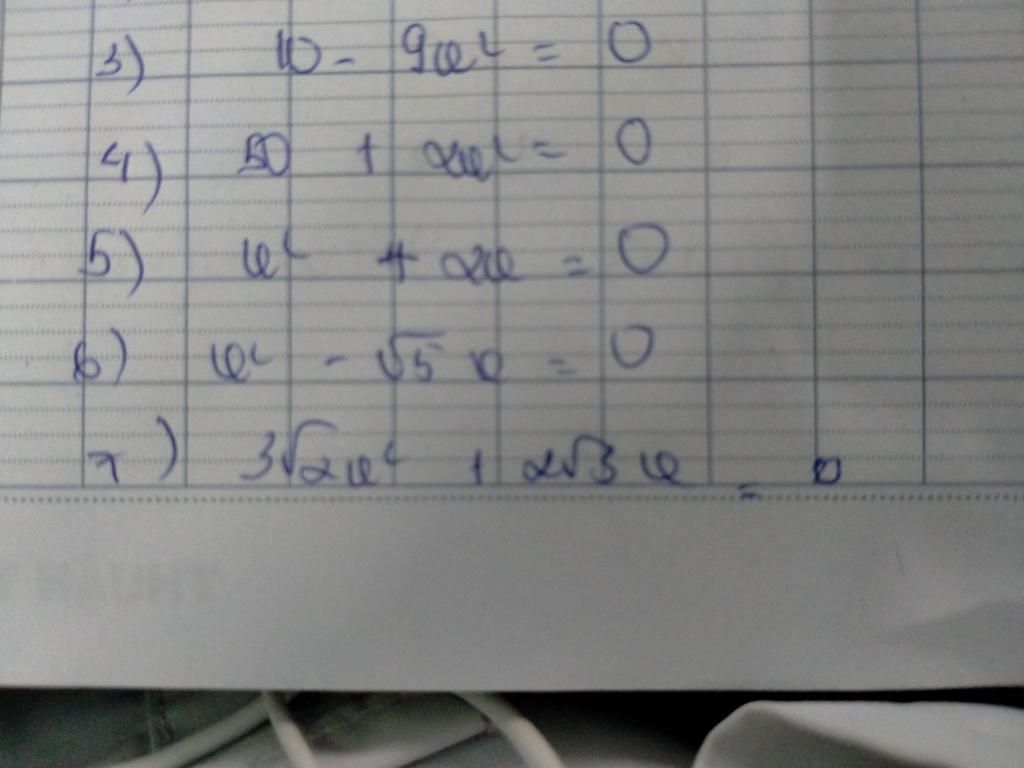 3) 10 - 9x² = 0
4) 50 + 2x² = 0
5) x² + 2x = 0
6) x² - √5 x = 0
7) 3√2x² + 2√3 x = 0